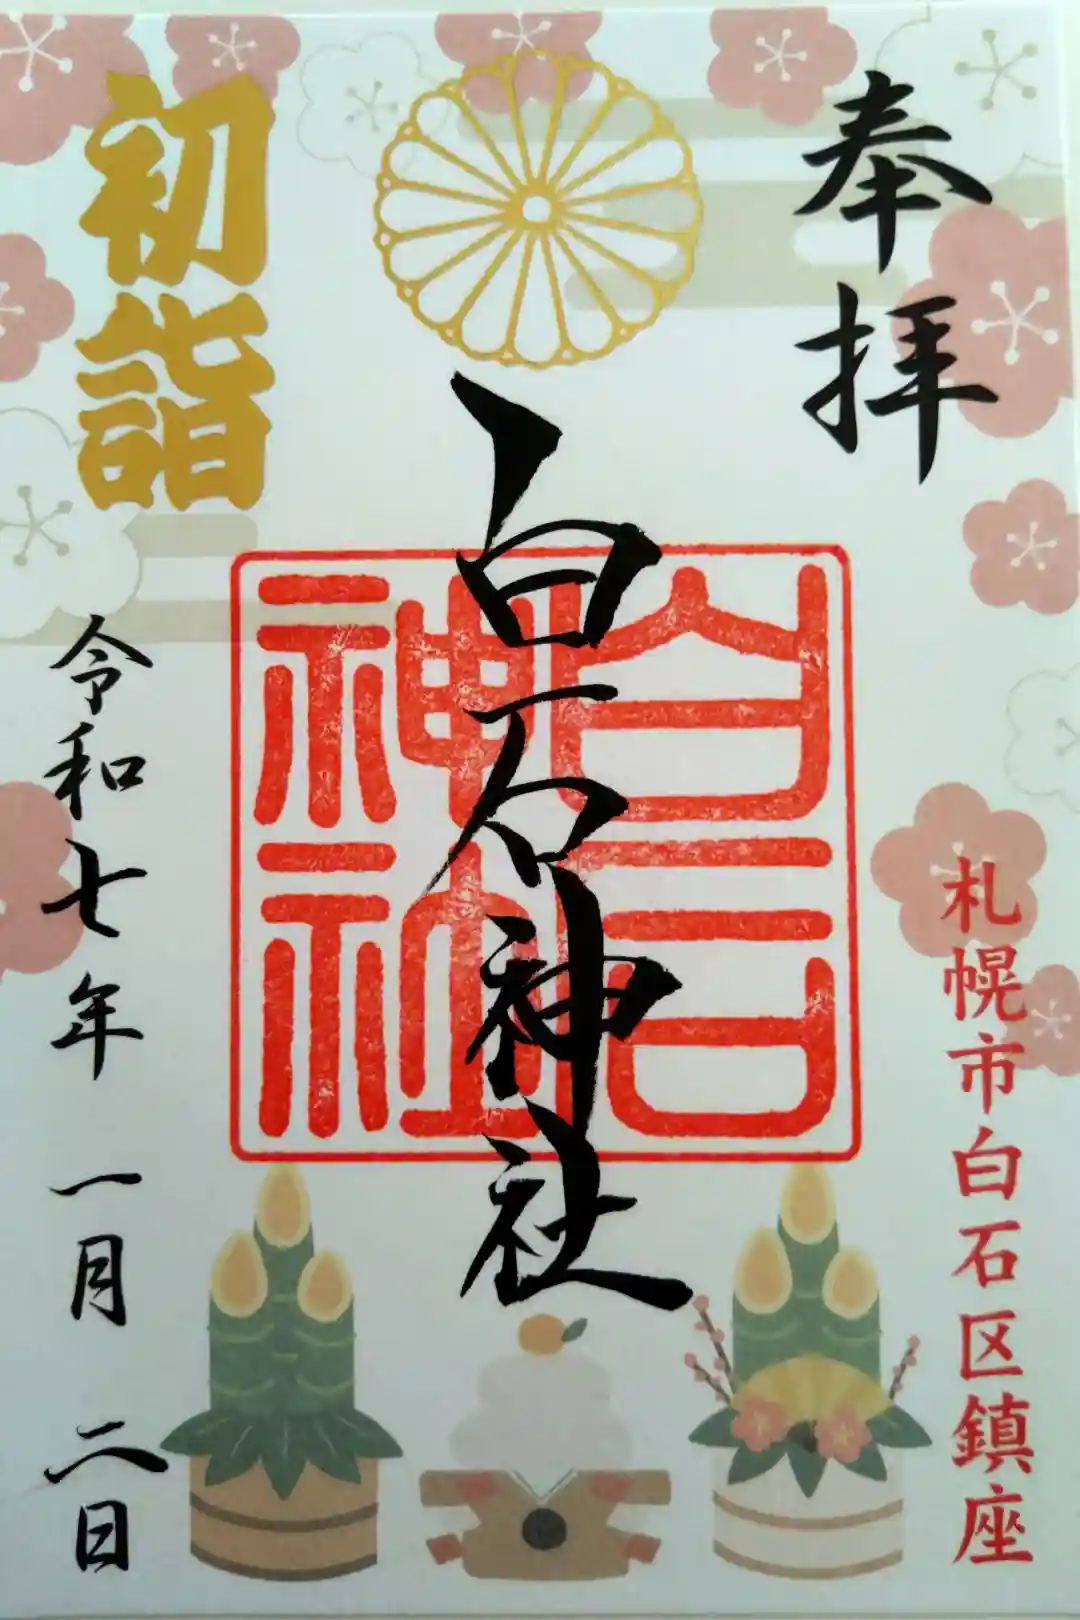 奉拝
札幌市白石区鎮座
白石神社
白石神社
初詣
令和七年一月二日